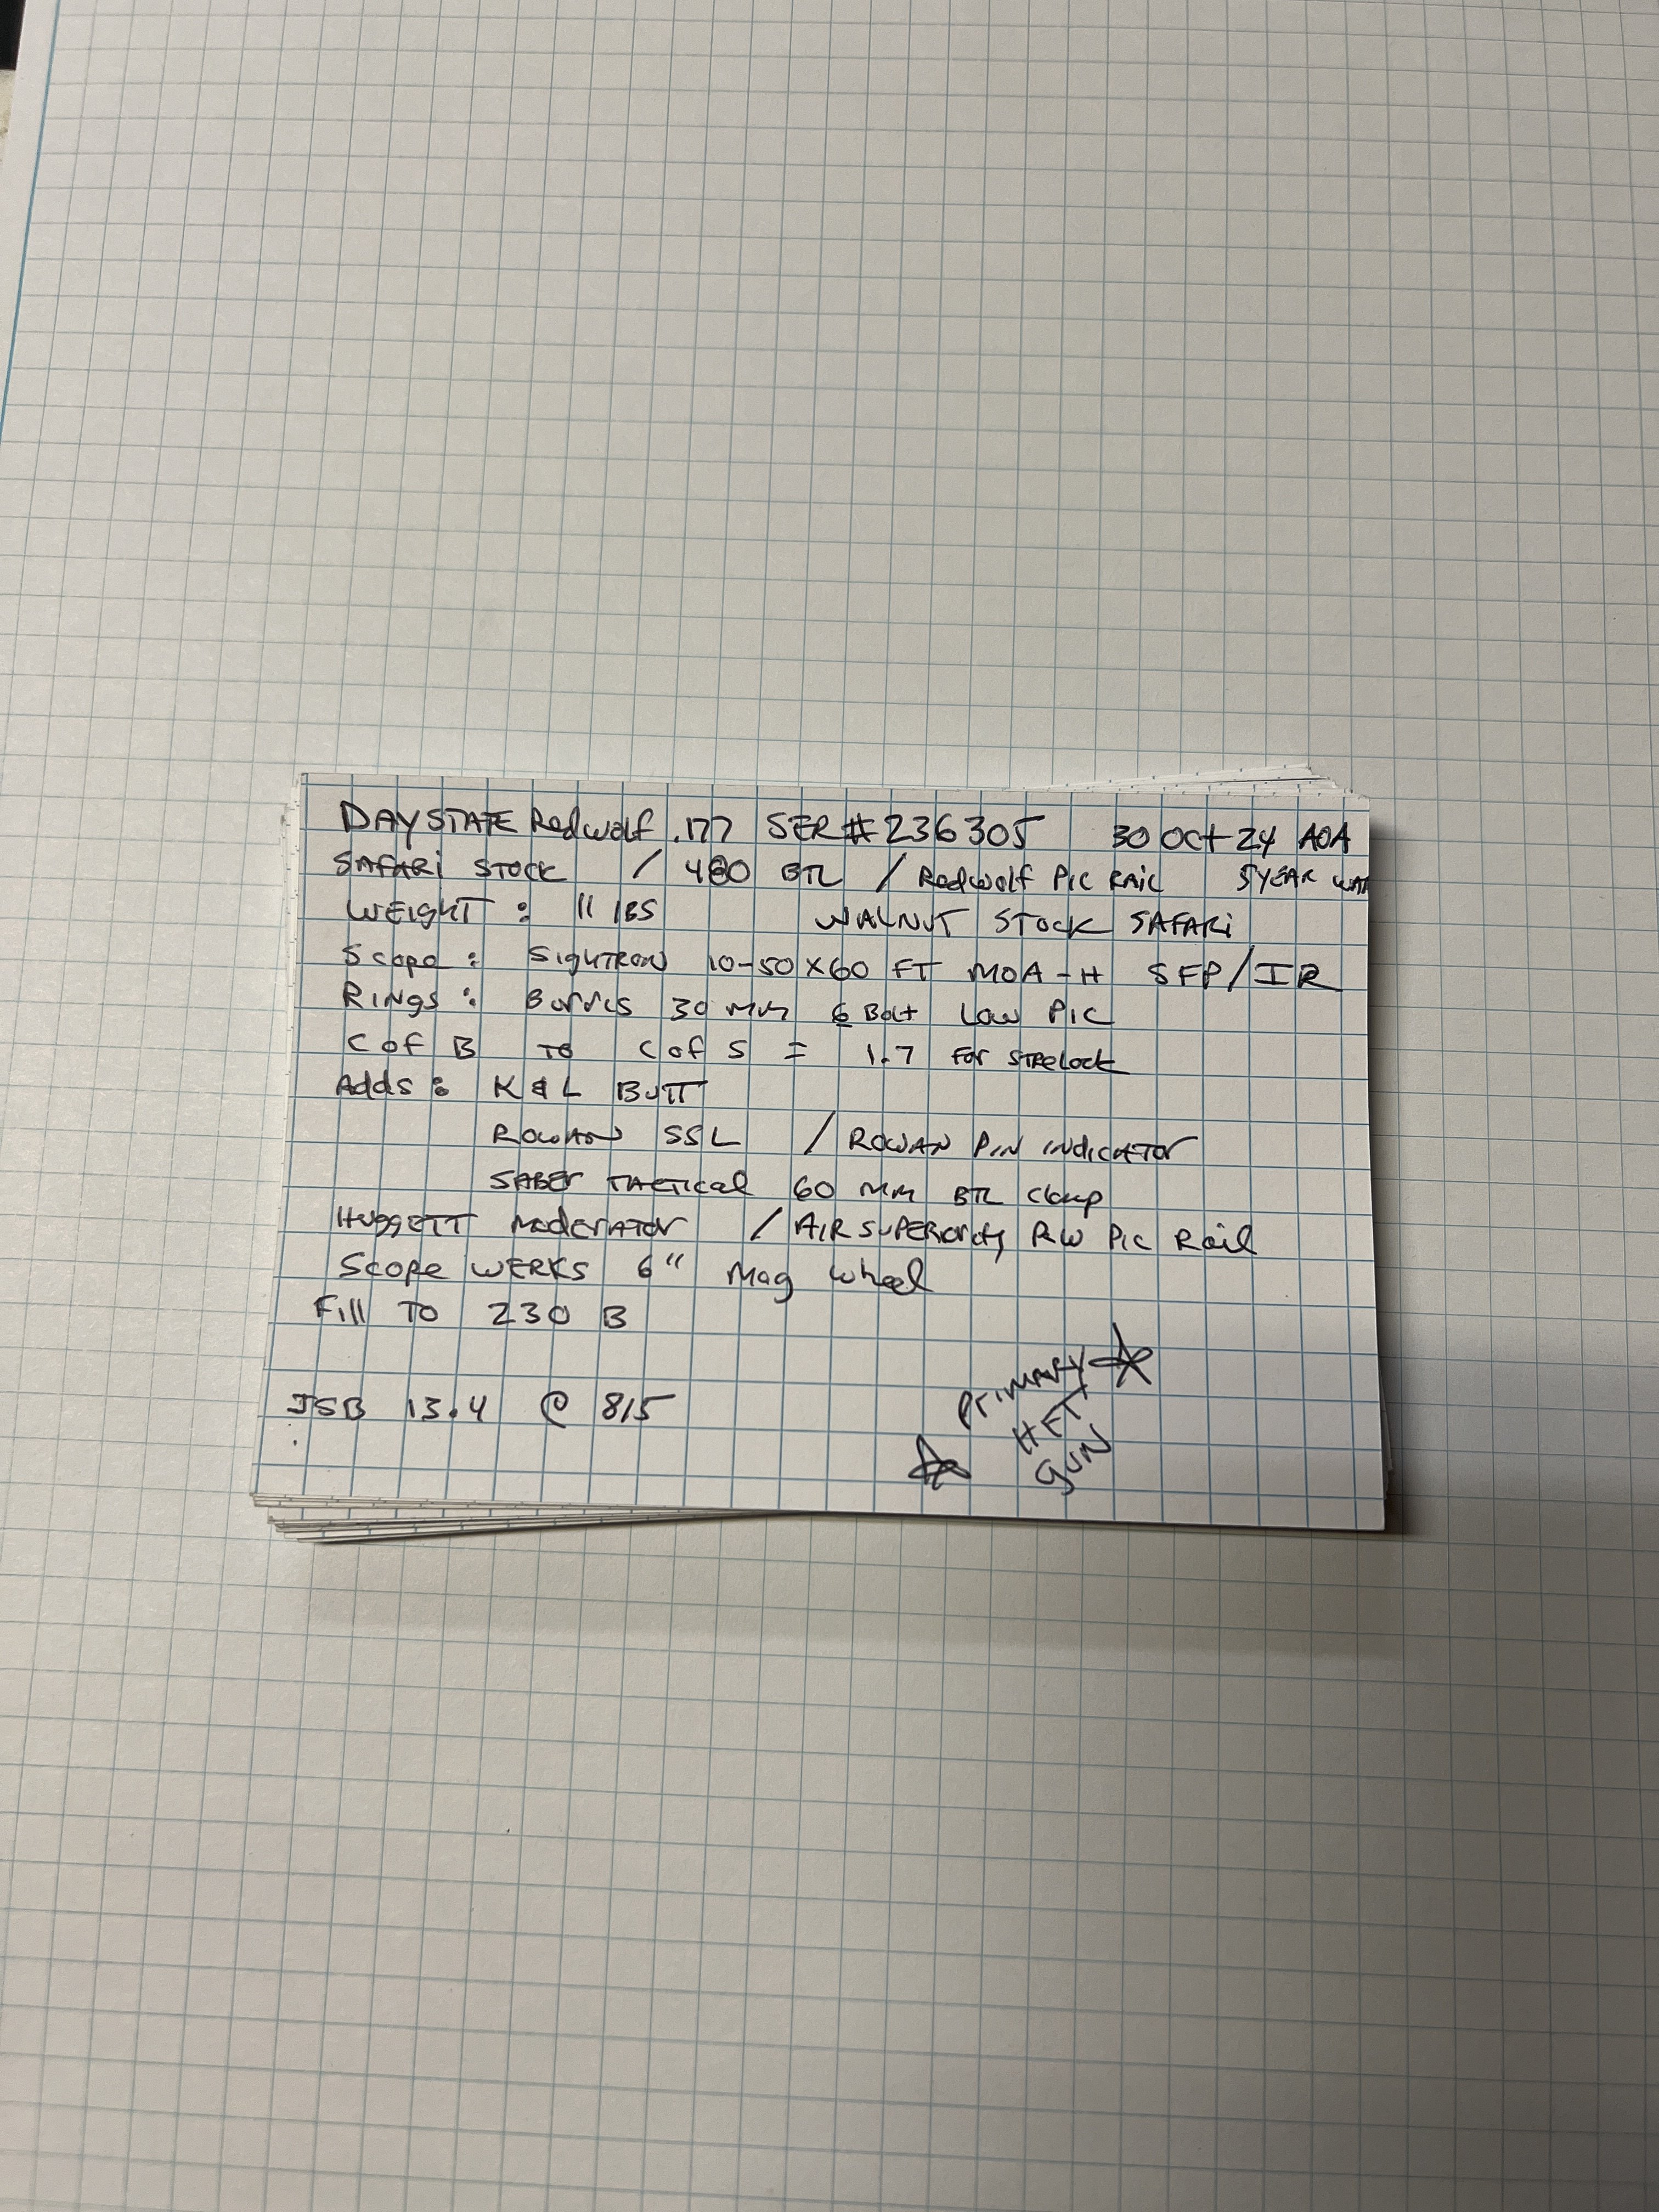 DAYSTATE Redwolf .177 SER# 236305 30 Oct 24 AOA
SAFARI STOCK / 480 BTL / Redwolf PIC RAIL 5 YEAR WAR
WEIGHT : 11 lBS WALNUT STOCK SAFARI
Scope : SIGHTRON 10-50X60 FT MOA-H SFP/IR
RINGS : Burris 30 MM 6 Bolt Low PIC
C of B TO C of S = 1.7 FOR STRELOCK
Adds : K & L BUTT
ROWAN SSL / ROWAN PIN INDICATOR
SABER TACTICAL 60 MM BTL Clamp
HUGGETT MODERATOR / AIR SUPERORITY RW PIC Rail
Scope WERKS 6" Mag Wheel
Fill TO 230 B
JSB 13.4 @ 815
PRIMARY
HFT
GUN